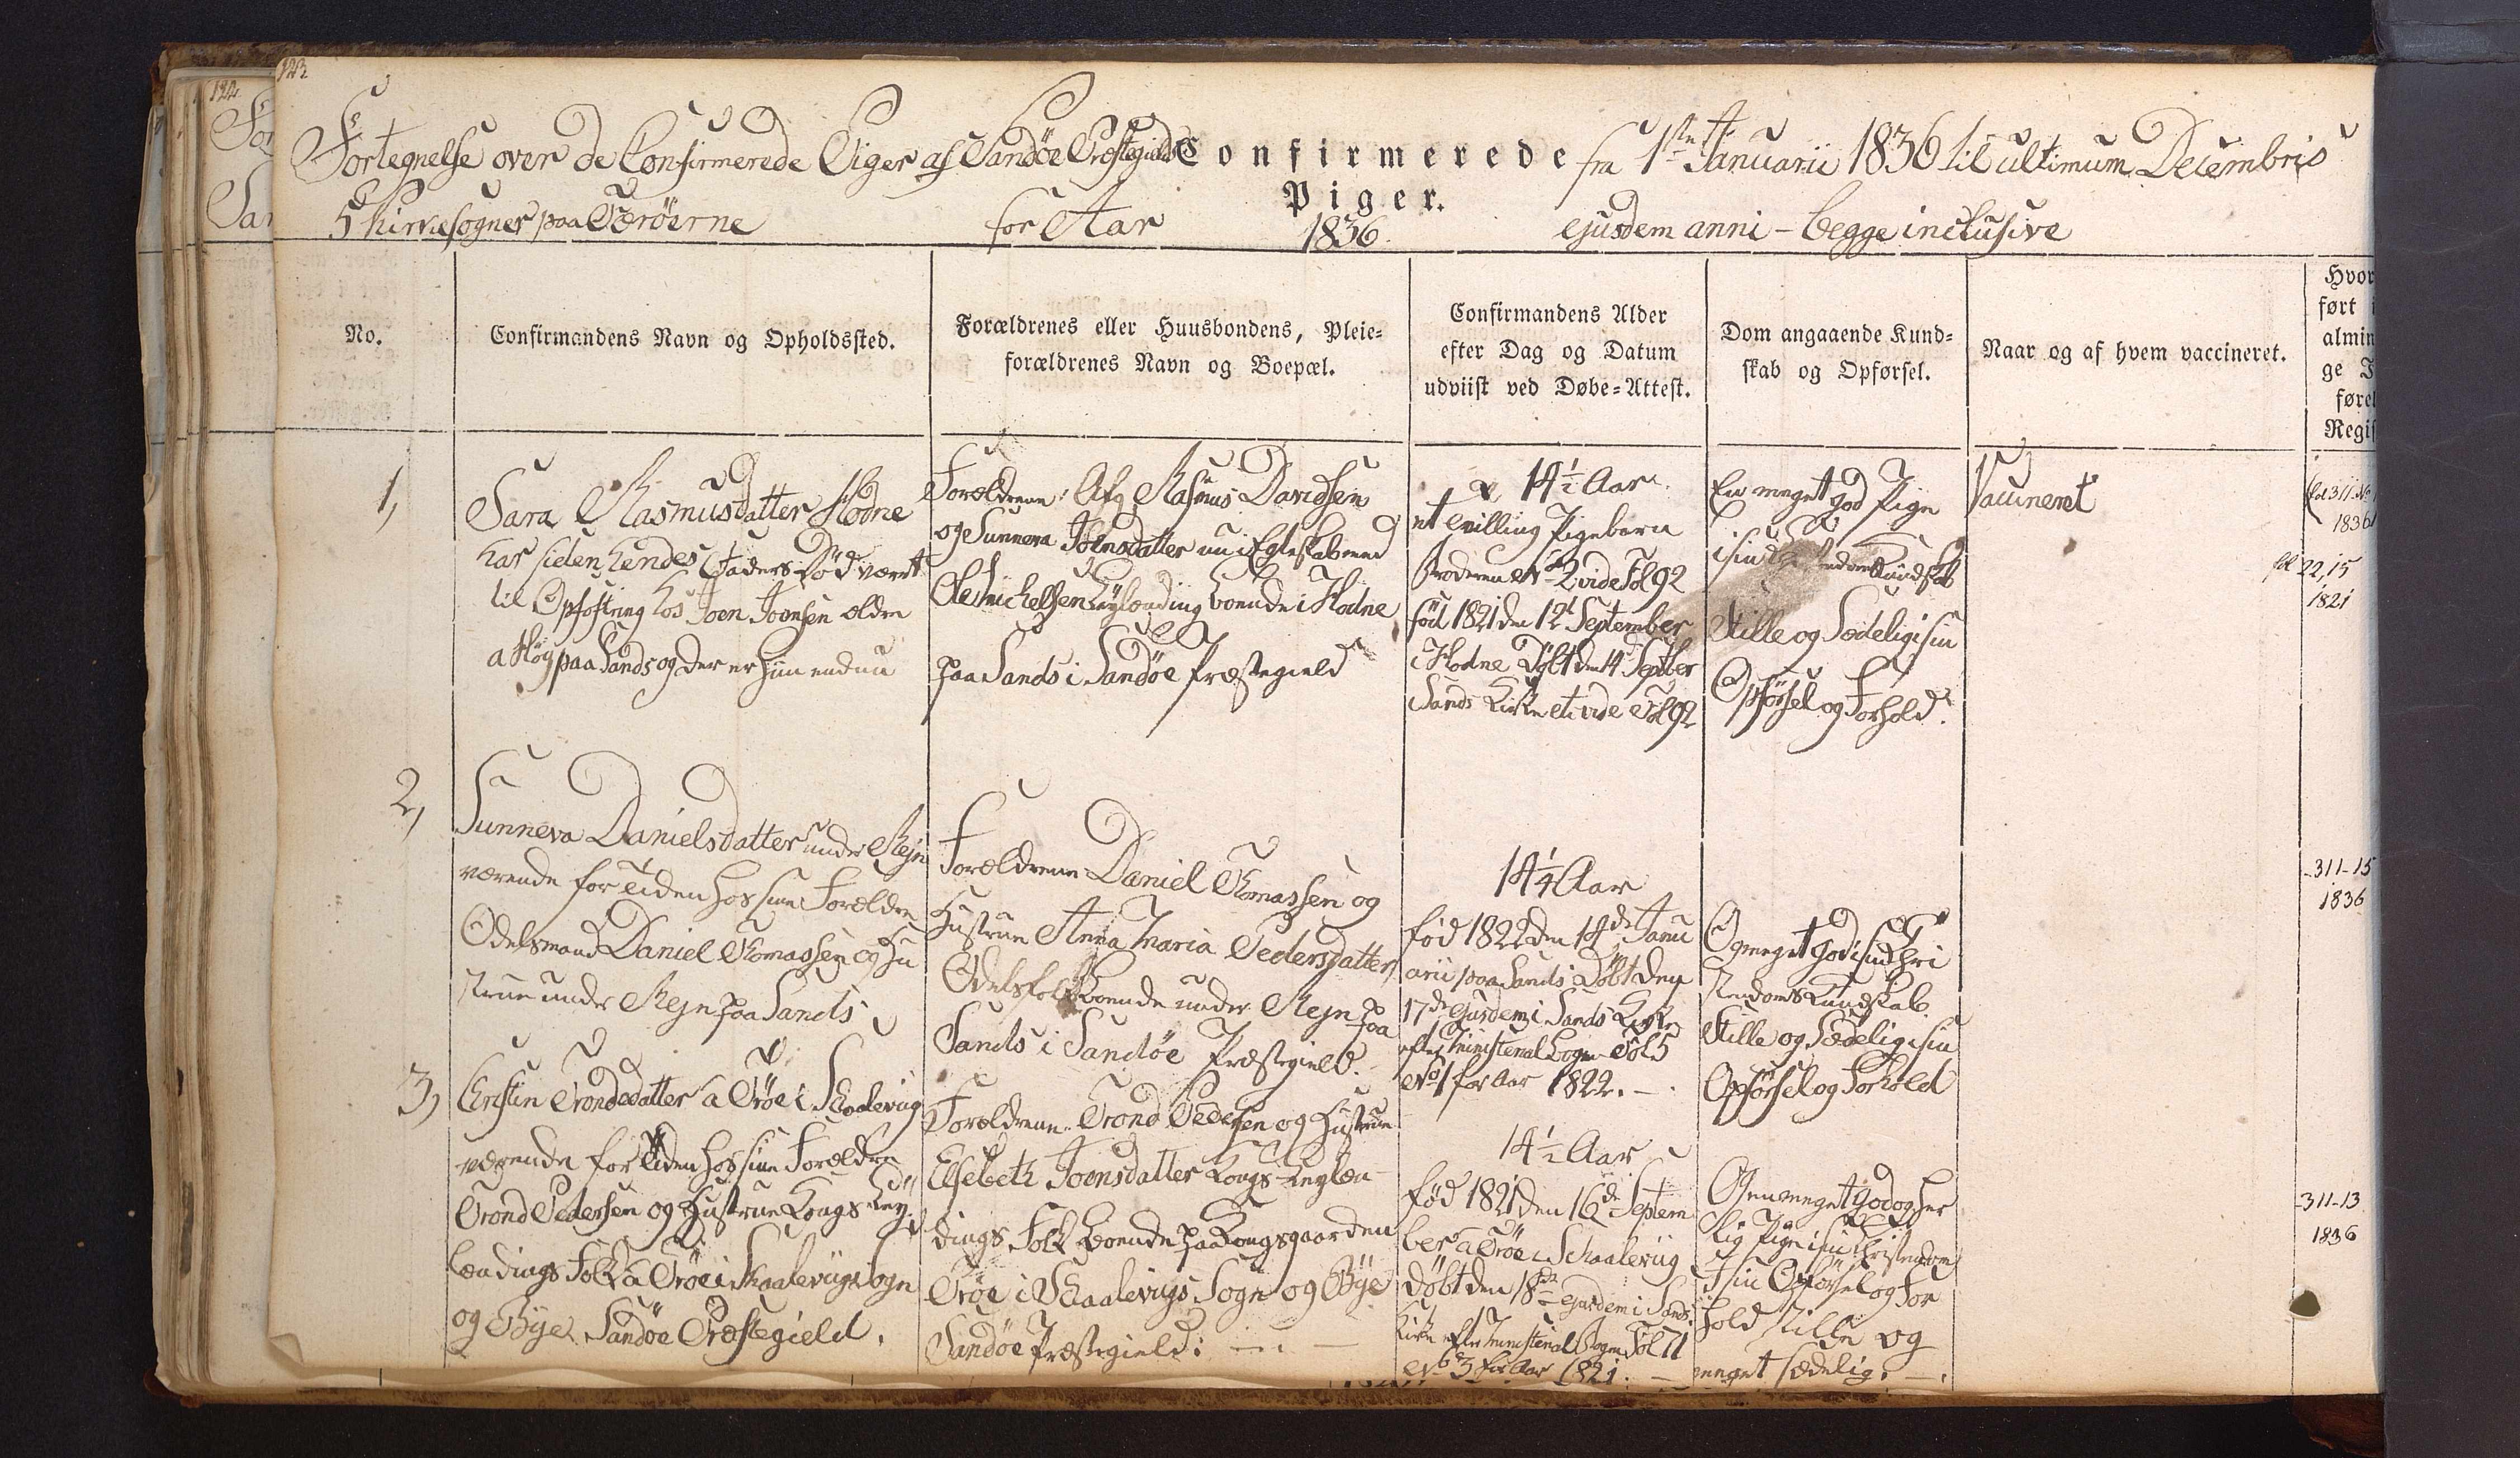 123
122
Fortegnelse over de Confirmerede Piger af Sandöe Præstegields Confirmerede fra 1ste Januarii 1836 til ultimum Decembris
Piger.
5 Kirkesogner paa Færöerne for Aar 1836. ejusdem anni - begge inclusive
No.
Confirmandens Navn og Opholdssted.
Forældrenes eller Huusbondens, Pleie-
forældrenes Navn og Boepæl.
Confirmandens Alder
efter Dag og Datum
udviist ved Døbe-Attest.
Dom angaaende Kund-
skab og Opførsel.
Naar og af hvem vaccineret.
Hvor
ført i
almin
ge J
førel
Regis
1,
Sara Rasmusdatter Flodne
har siden hendes Faders Död været
til Opfostring hos Joen Joensen ældre
a Höig paa Sands og der er hun endnu
Forældrene: Afg. Rasmus Davidsen
og Sunneva Joensdatter nu i Egteskab med
Ole Michelsen boende i Flodne
paa Sands i Sandöe Præstegield
14½ Aar.
et Tvilling Pigebarn
Broderen No 2 vide Fol 92
föd 1821 den 12t September
i Flodne Döbt den 14d Septber
i Sands Kirke vide Fol 92
En meget god Pige
i sin Kundskab
Stille og Sædelig i sin
Opförsel og Forhold.
Vaccineret
1836
fol 22, 15
1821
2,
Sunneva Danielsdatter under Rejn
værende for Tiden hos sine Forældre
Odelsmand Daniel Thomassen og Hu
strue under Rejn paa Sands
Forældrene Daniel Thomassen og
Hustrue Anna Maria Pedersdatter
Odelsfolk boende under Rejn paa
Sands i Sandöe Præstegield.
14¼ Aar
föd 1822 den 14de Janu
arii paa Sands Döbt den
17de ejusdem i Sands Kirke
efter Ministerial Bogen Fol 5
No 1 for Aar 1822.
Og meget god i sin Chri
stendoms Kundskab
Stille og Sædelig i sin
Opförsel og Forhold
-311-15
1836
3,
Cristin Trondsdatter a Tröe i Skaalevüig
værende for Tiden hos sine Forældre
Trond Pedersen og Hustrue Kongs Fey
lændings Folk a Tröe i Skaalevigs Sogn
og Bÿe Sandöe Præstegield.
Forældrene Trond Pedersen og Hustrue
Elsebeth Joensdatter Kongs Feylæn-
dings Folk boende paa Kongsgaarden
Tröe i Skaalevigs Sogn og Bÿe
Sandöe Præstegield:
14½ Aar
föd 1821 den 16de Septem
ber a Tröe i Skaalevüig
döbt den 18de ejusdem i Sands
Kirke efter Ministerial Bogen Fol 71
No 3 for Aar 1821.
Og en meget god og
lig Pige i sin Christendom
I sin Opförsel og For
hold stille og
meget sædelig.
-311-13
1836